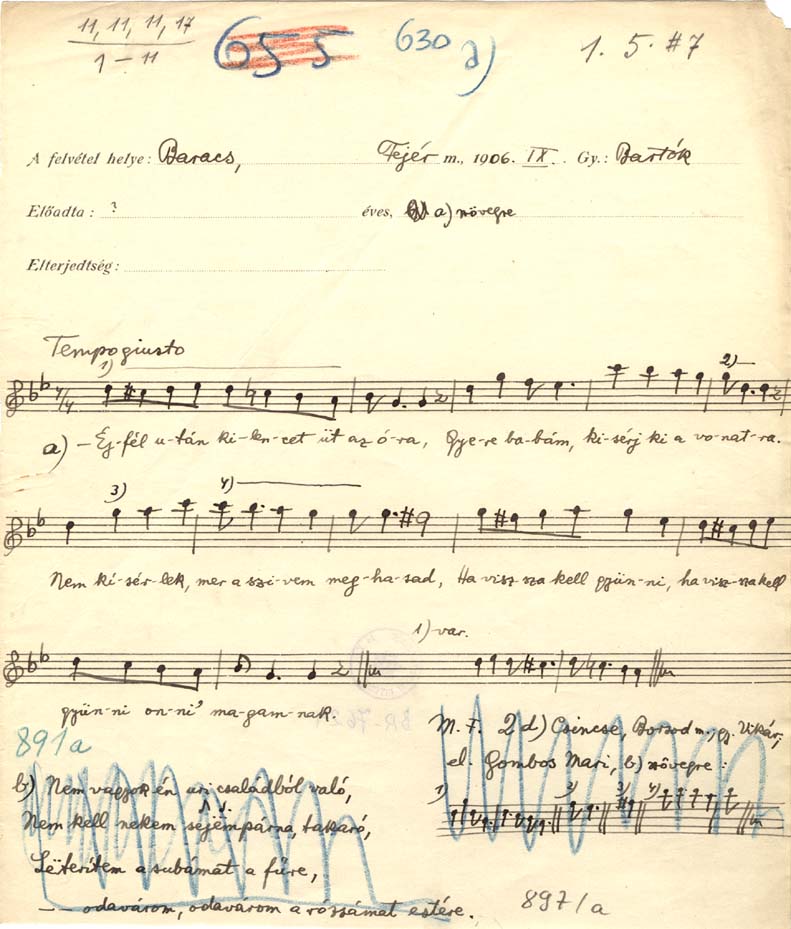 11, 11, 11, 17
1 – 11
655
630 a)
1. 5. #7
A felvétel helye: Baracs, Fejér m., 1906. IX. Gy.: Bartók
Előadta: ? éves, a) szövegre
Elterjedtség:
Tempo giusto
1) 2)
7/4
a) – Éj-fél u-tán ki-len-cet üt az ó-ra, Gye-re ba-bám, ki-sérj ki a vo-nat-ra.
3) 4)
Nem ki-sér-lek, mer a szi-vem meg-ha-sad, Ha visz-sza kell gyün-ni, ha visz-szakell
1) var.
gyün-ni on-ni' ma-gam-nak.
BR-762
M. F. 2 d) Csincse, Borsod m., gy. Vikár,
el. Gombos Mari, b) szövegre:
1) 2) 3) 4)
891a
b) Nem vagyok én uri családból való,
Nem kell nekem sejëmpárna, takaró,
Lëterítem a subámat a fűre,
– – odavárom, odavárom a rózsámat estére.
897/a